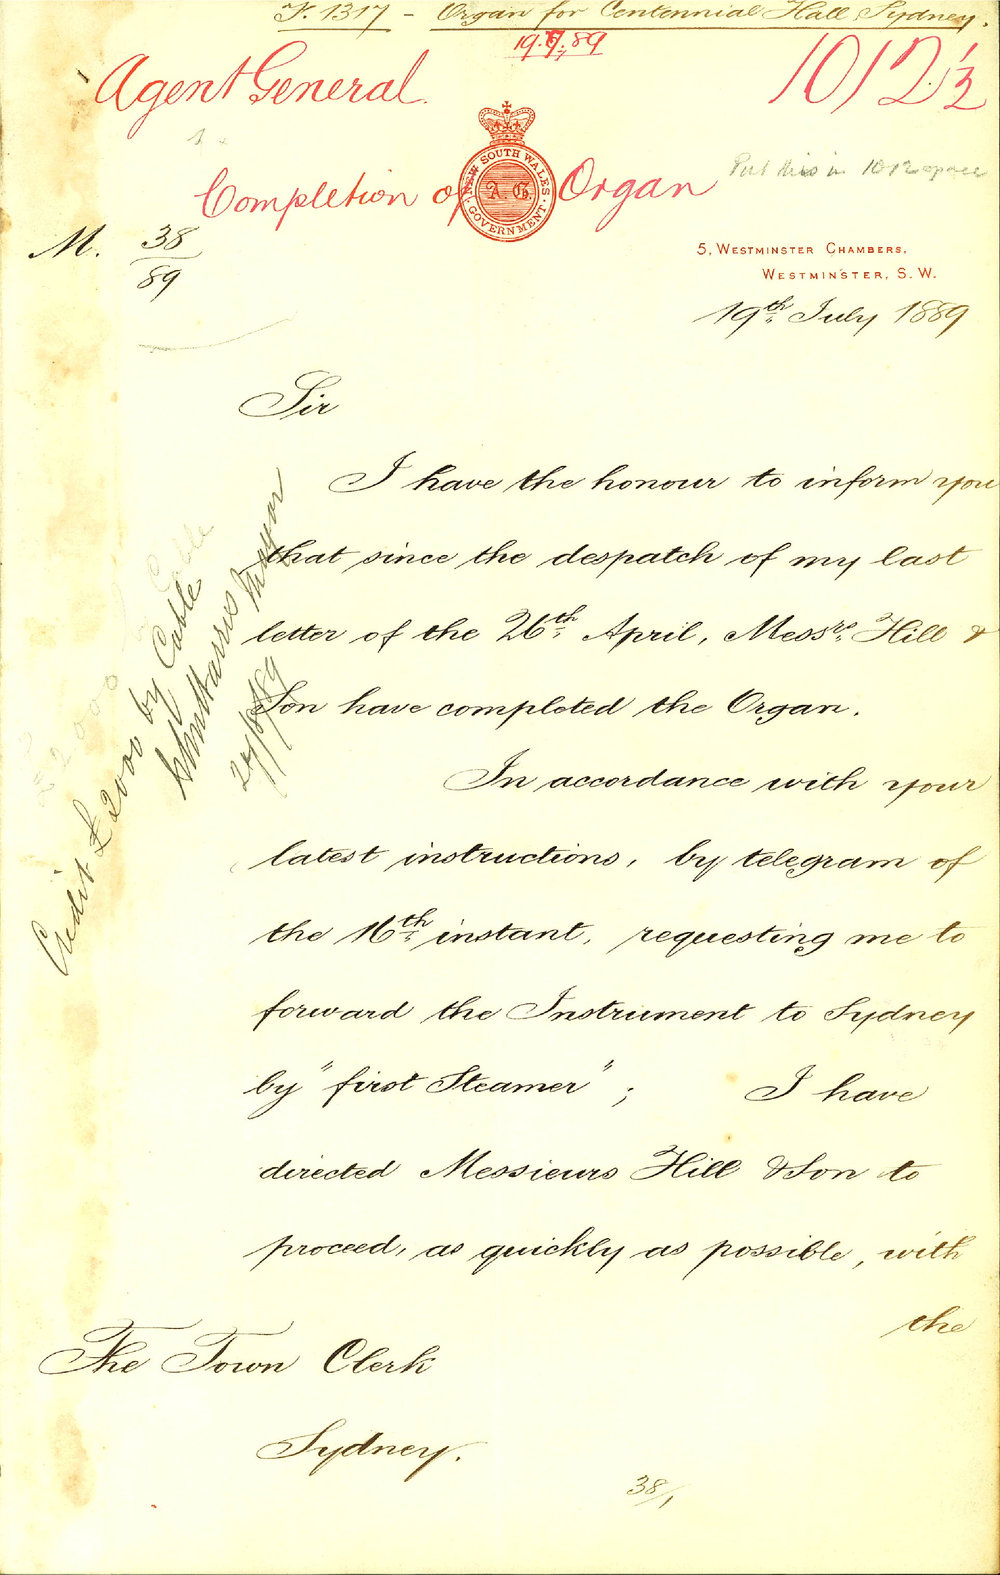 F. 1317 - Organ for Centennial Hall Sydney.
19.7.89
Agent General.
1012½
NEW SOUTH WALES
A. G.
GOVERNMENT
Completion of Organ
Put this in 1012 space
M. 38/89
5, WESTMINSTER CHAMBERS,
WESTMINSTER, S. W.
19th July 1889
Sir
I have the honour to inform you
that since the despatch of my last
letter of the 26th April, Messrs. Hill &
Son have completed the Organ.
In accordance with your
latest instructions, by telegram of
the 16th instant, requesting me to
forward the Instrument to Sydney
by "first Steamer"; I have
directed Messieurs Hill & Son to
proceed, as quickly as possible, with
the
Credit £2000 by Cable
John Harris Mayor
The Town Clerk
Sydney.
38/1